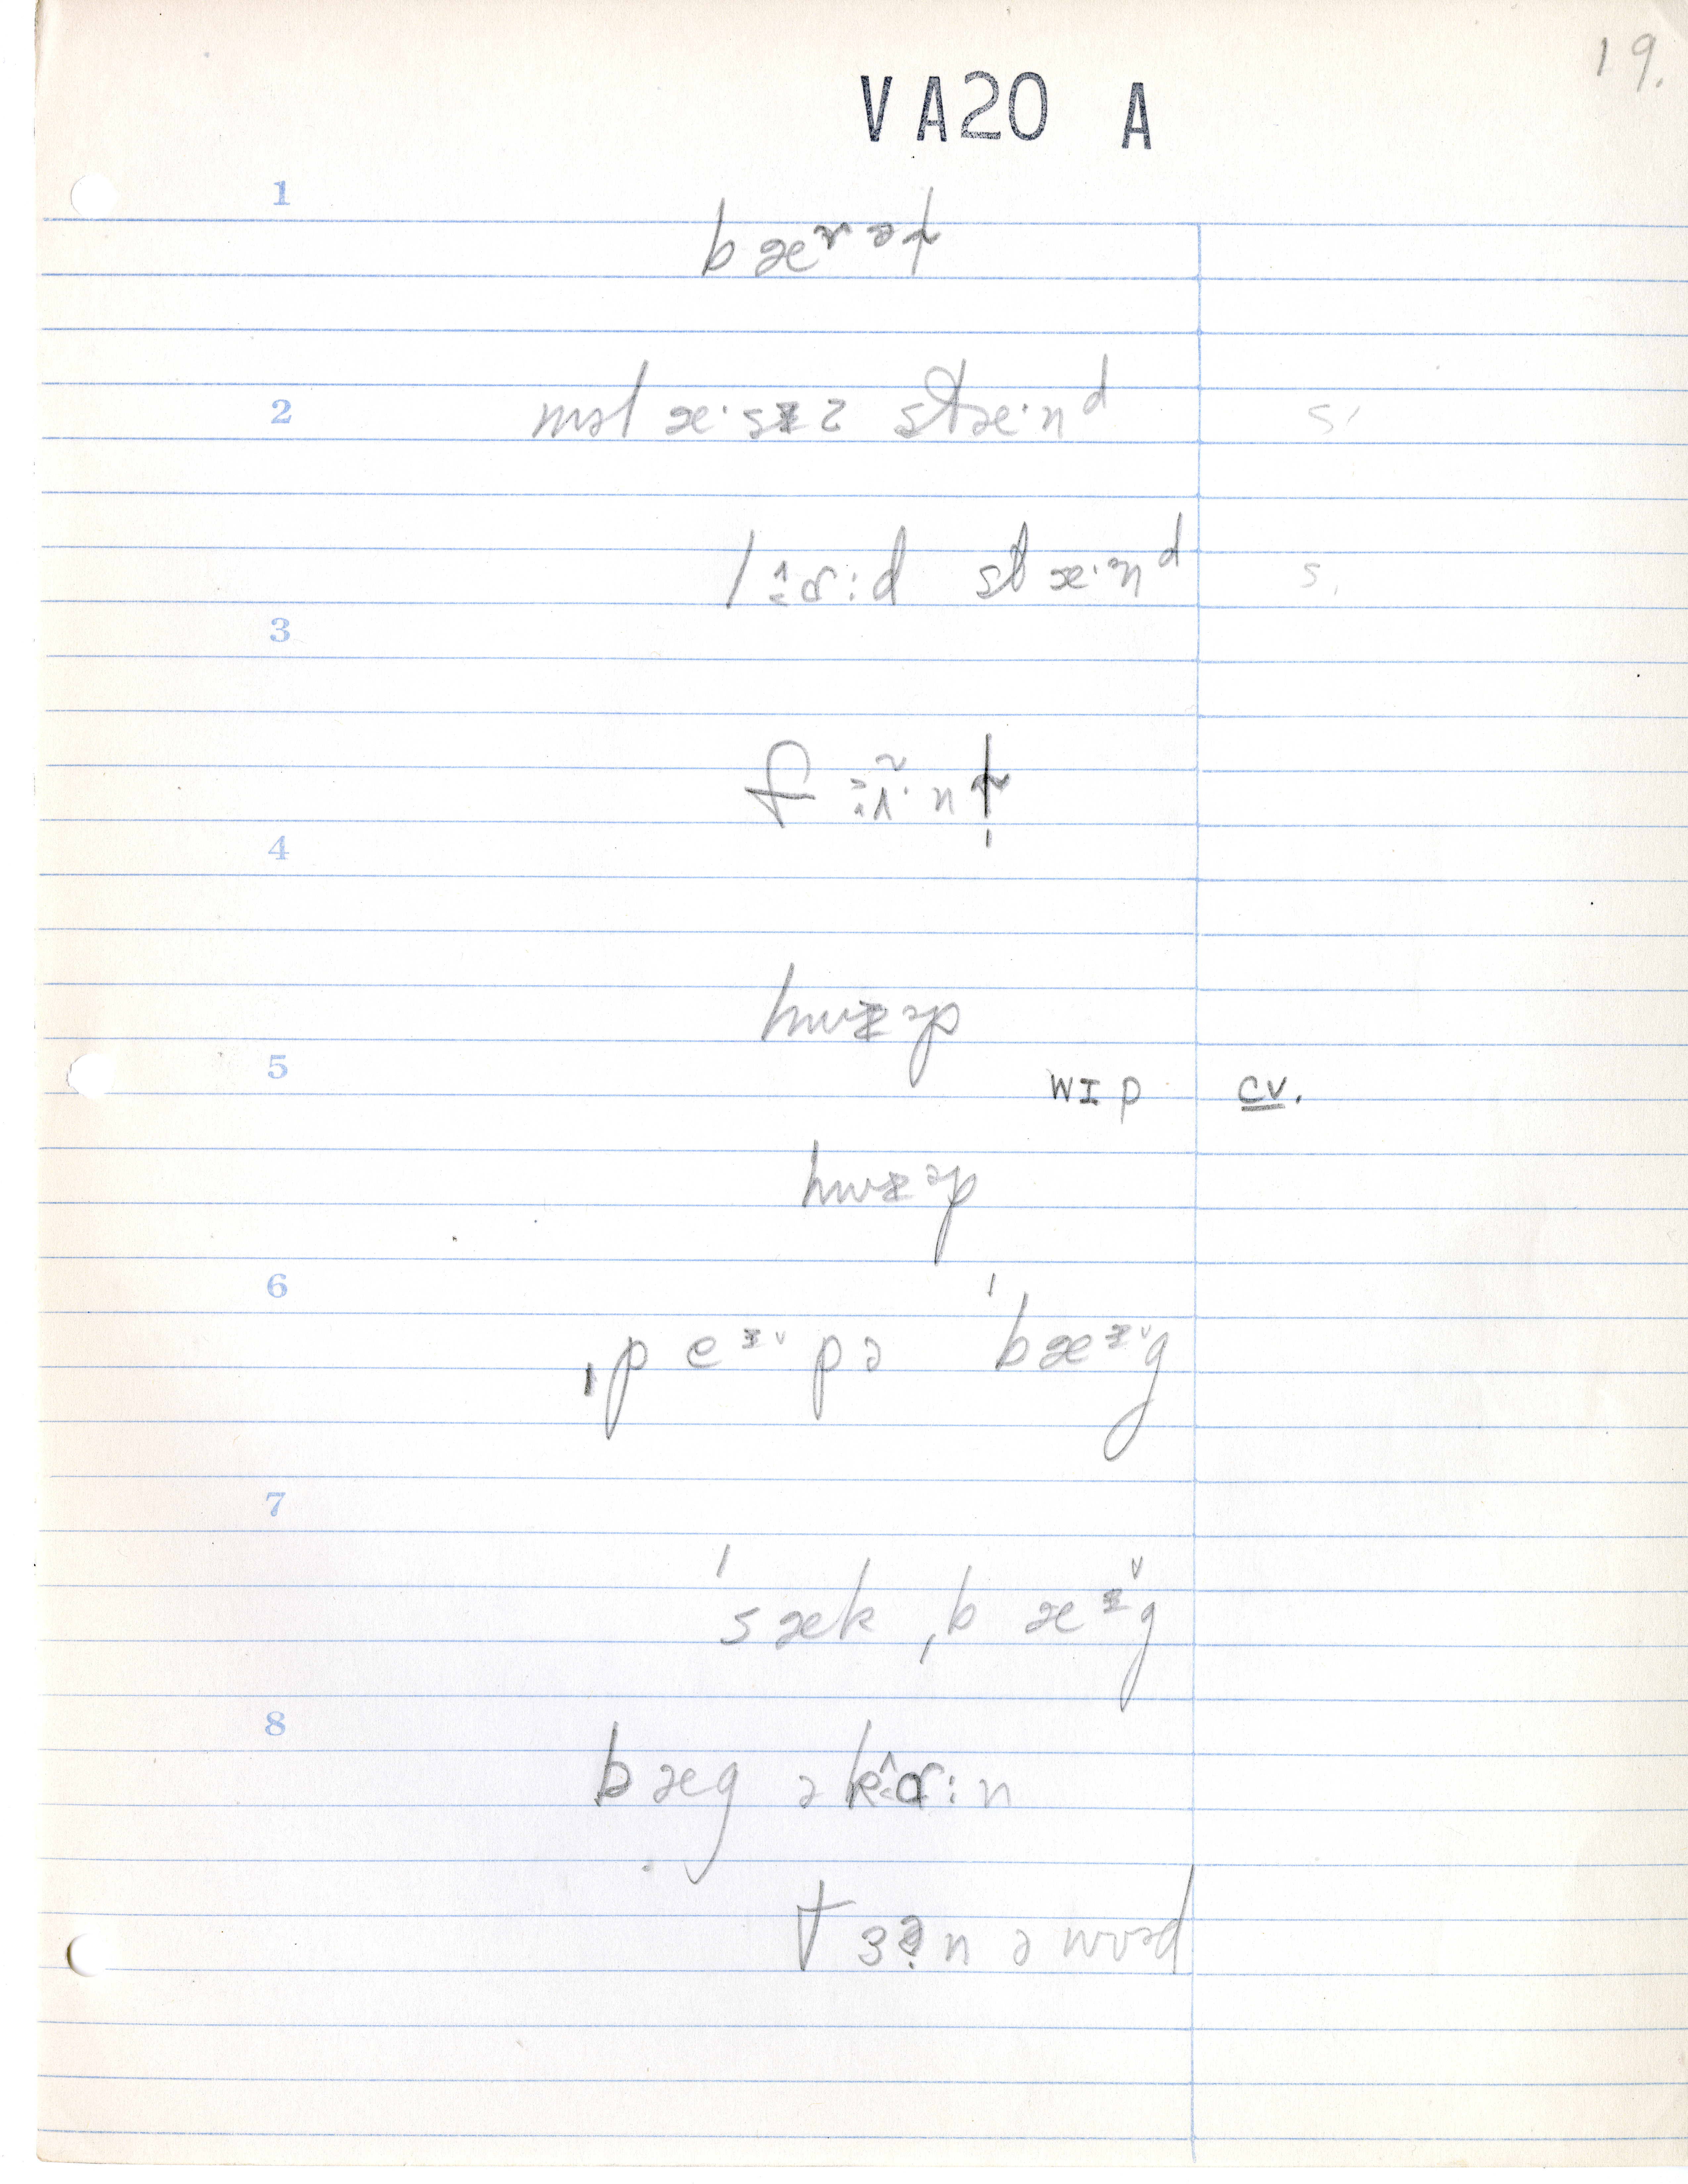 19.
VA20 A
1
bæɤət̬
2 məlæ·sɪz stæ·nᵈ s.
lɑ^:d stæ·nᵈ s.
3
f
4
hwɪəp
5
wɪp cv.
hwɪəp
6
ˌpeᶦ˅pə ˈbæᶦ˅g
7
ˈsæk ˌbæᶦ˅g
8
bæg ə kɑ^:n
tɜən ə wʊəd